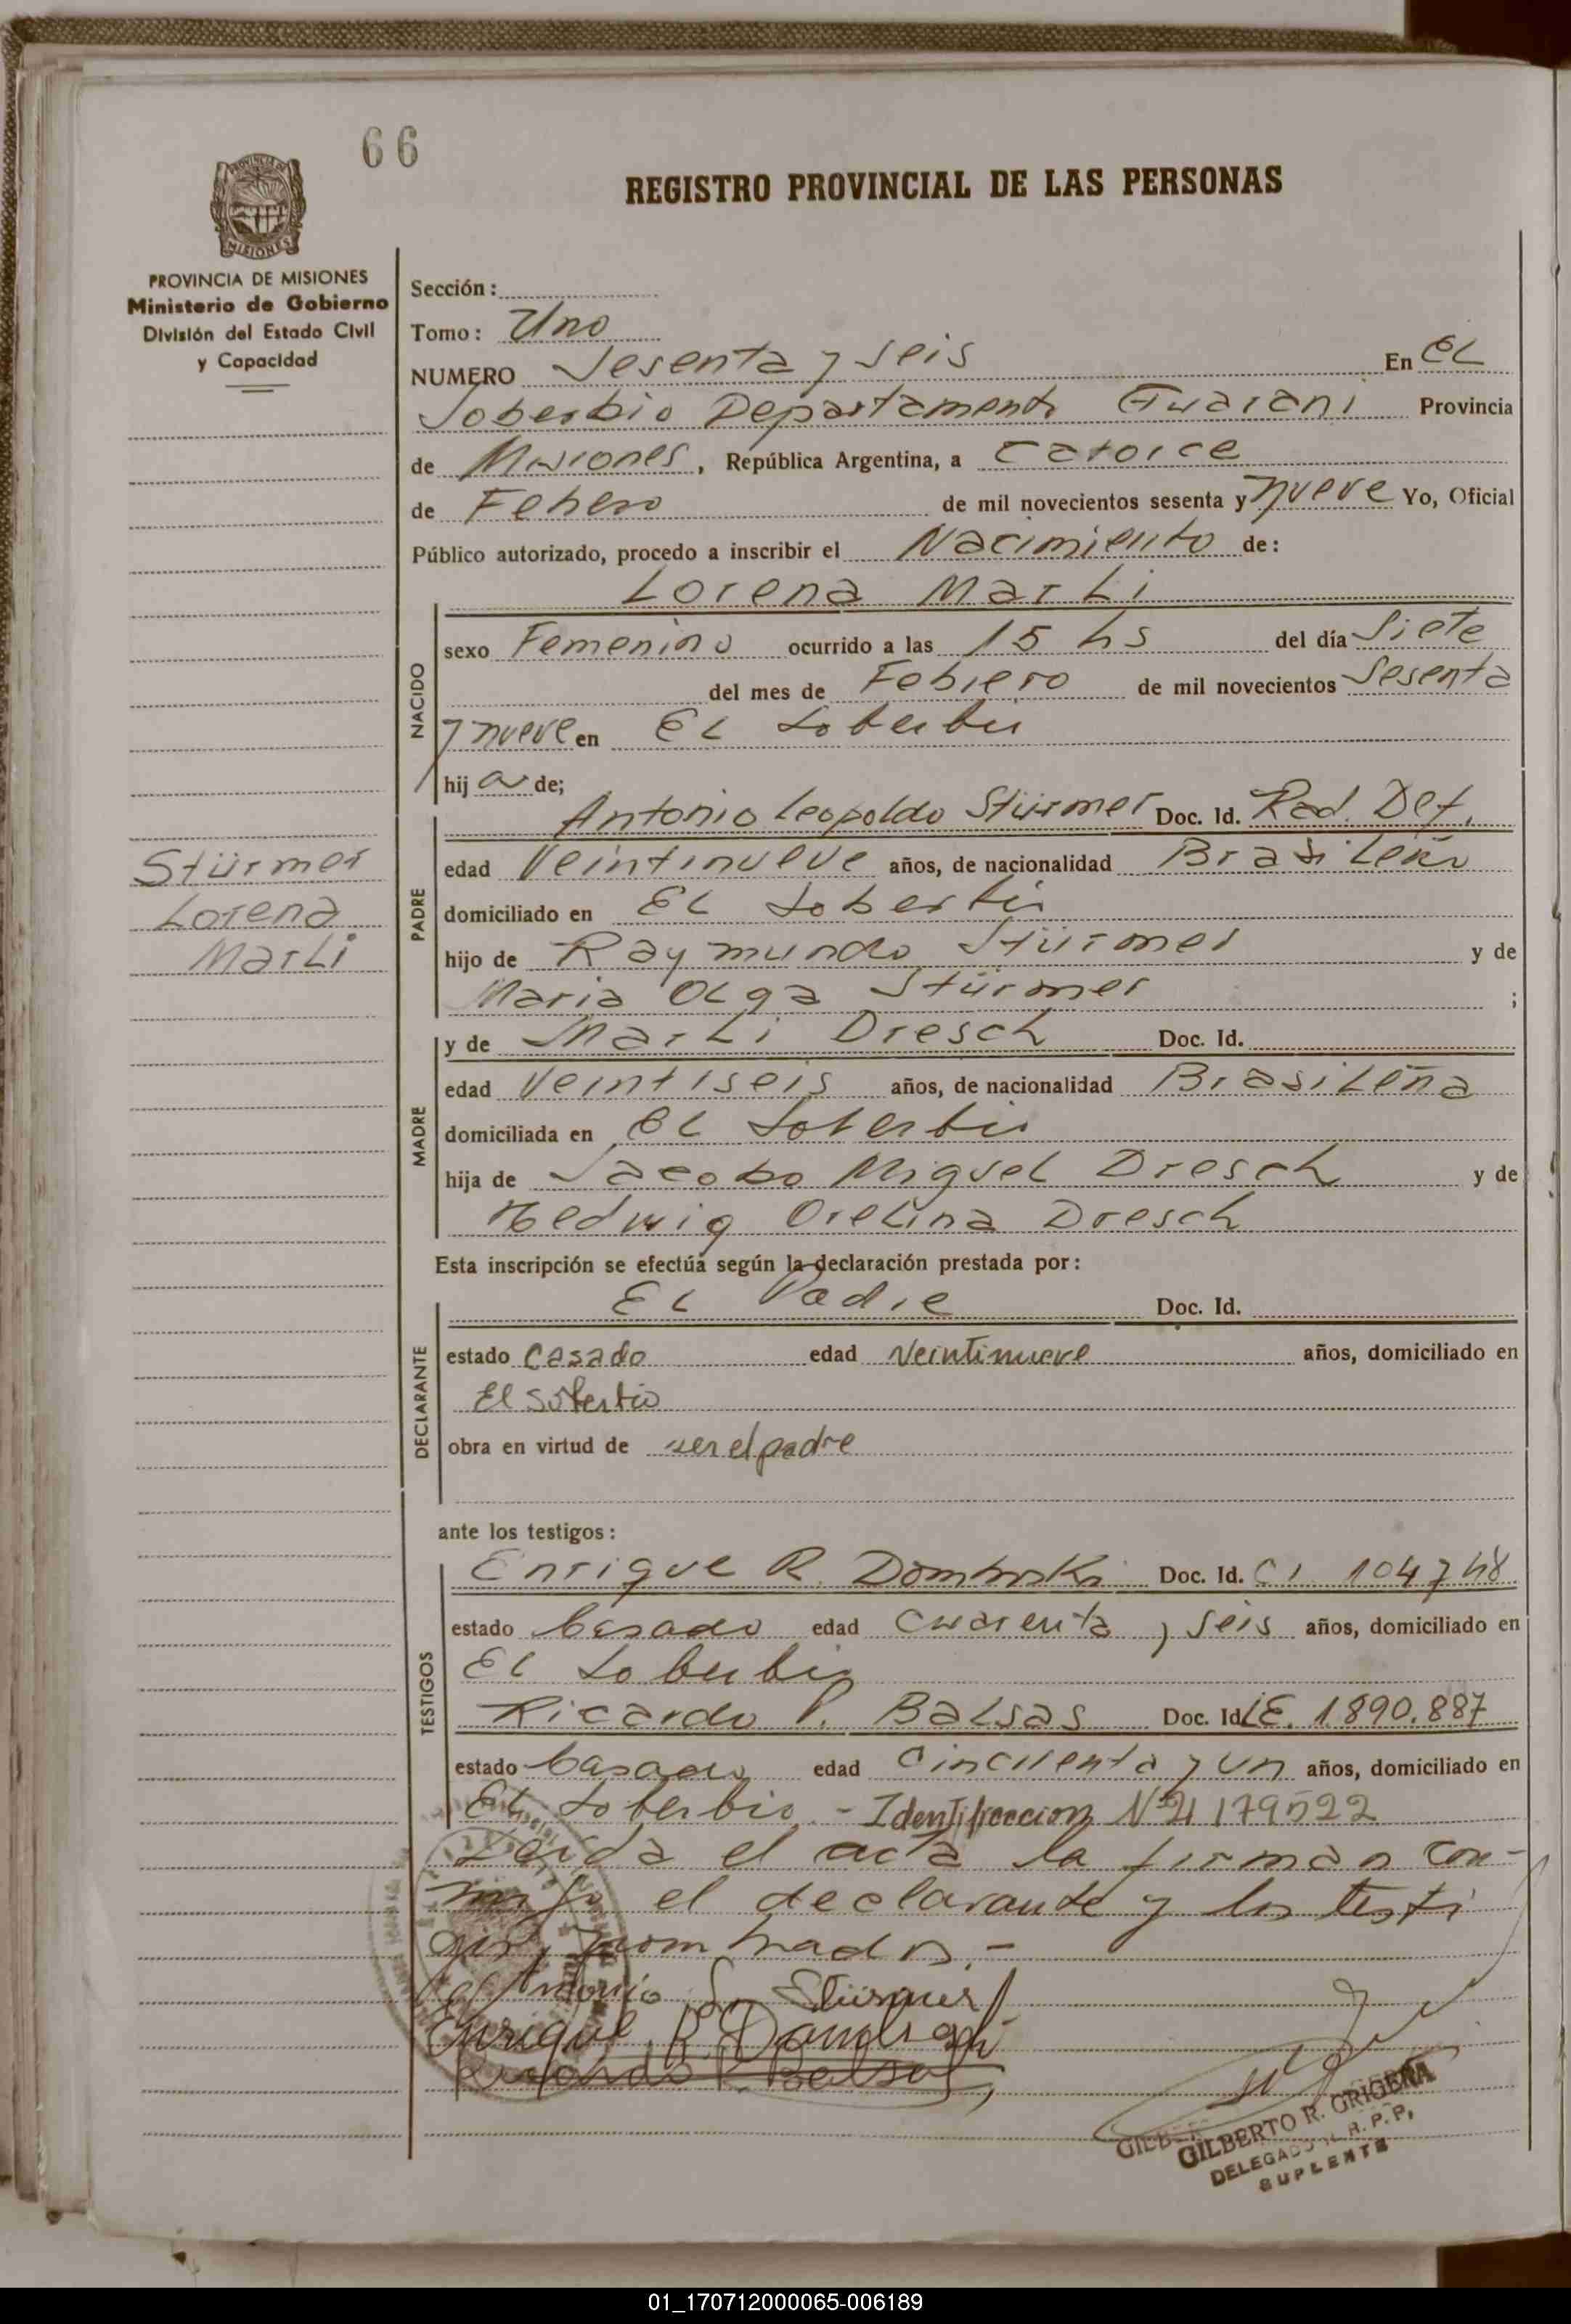 66
REGISTRO PROVINCIAL DE LAS PERSONAS
PROVINCIA DE MISIONES
MISIONES
PROVINCIA DE MISIONES
Ministerio de Gobierno
División del Estado Civil
y Capacidad
Sección:
Tomo: Uno
NUMERO Sesenta y seis En EL
Soberbio Departamento Guarani Provincia
de Misiones, República Argentina, a Catorce
de Febrero de mil novecientos sesenta y nueve Yo, Oficial
Público autorizado, procedo a inscribir el Nacimiento de:
Lorena Marli
NACIDO
sexo Femenino ocurrido a las 15 hs del día Siete
del mes de Febrero de mil novecientos Sesenta
y nueve en EL Soberbio
hij a de;
Antonio Leopoldo Stürmer Doc. Id. Rad. Def.
PADRE
edad Veintinueve años, de nacionalidad Brasileño
domiciliado en EL Soberbio
hijo de Raymundo Stürmer y de
Maria Olga Stürmer ;
Stürmer
Lorena
Marli
MADRE
y de Marli Dresch Doc. Id.
edad Veintiseis años, de nacionalidad Brasileña
domiciliada en EL Soberbio
hija de Jacobo Miguel Dresch y de
Hedwig Orelina Dresch
Esta inscripción se efectúa según la declaración prestada por:
DECLARANTE
EL Padre Doc. Id.
estado Casado edad Veintinueve años, domiciliado en
El Soberbio
obra en virtud de ser el padre
ante los testigos:
TESTIGOS
Enrique R. Dombroski Doc. Id. C I 104748
estado Casado edad Cuarenta y Seis años, domiciliado en
EL Soberbio
Ricardo P. Balsas Doc. Id L.E. 1.890.887
estado Casado edad Cincuenta y un años, domiciliado en
EL Soberbio - Identificacion Nº 4179522
Leida el acta la firman con-
migo el declarante y los testi
gos nombrados.-
Antonio L. Stürmer
Enrique R. Dombroski
Ricardo P. Balsas
GILBER
GILBERTO R. GRIGERA
DELEGADO R.P.P,
SUPLENTE
01_170712000065-006189